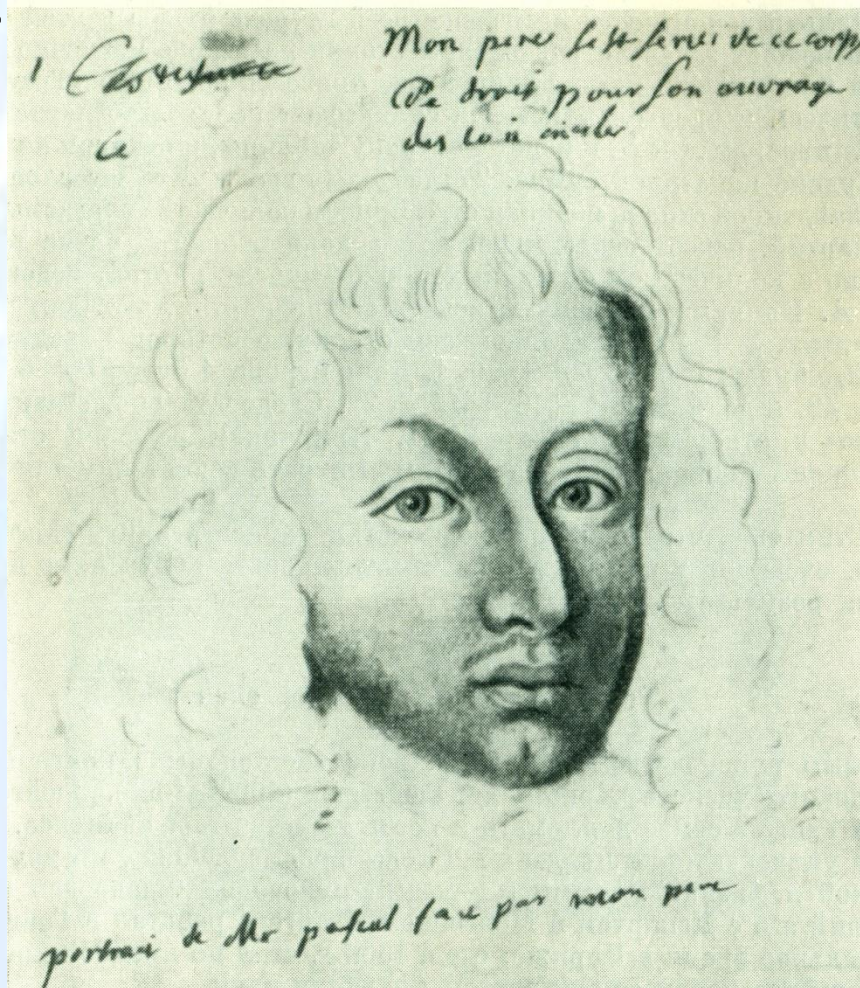 1
Mon pere sest serui de ce corps
De droit pour son ouurage
des loix ciuiles
Ce
portrait de Mr pascal fait par mon pere